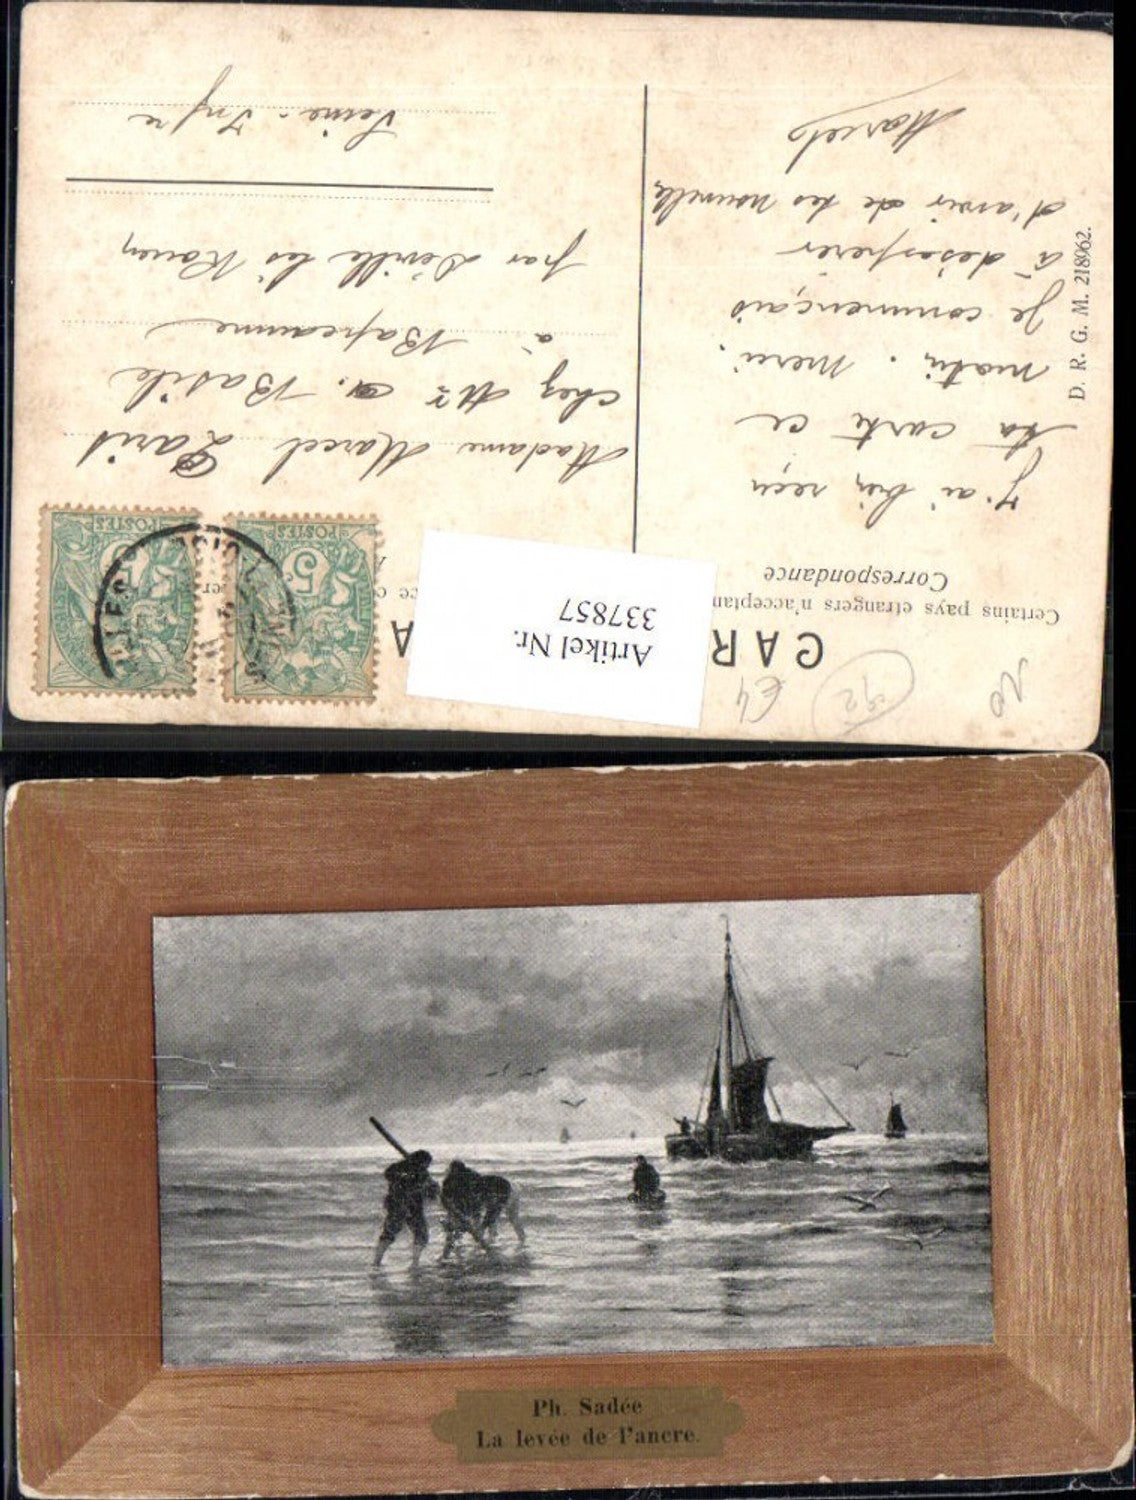 CAR
A
Certains pays étrangers n'acceptan
Correspondance
Artikel Nr.
337857
£4
92
POSTES
5
POSTES
5
J'ai bien reçu
ta carte ce
matin. Merci.
Je commençais
à désespérer
d'avoir de tes nouvelles
Marcel
Madame Marcel
chez Mr a. Basile
à Bapeaume
par Déville lès Rouen
Seine-Infre
D. R. G. M. 218962.
Ph. Sadée
La levée de l'ancre.